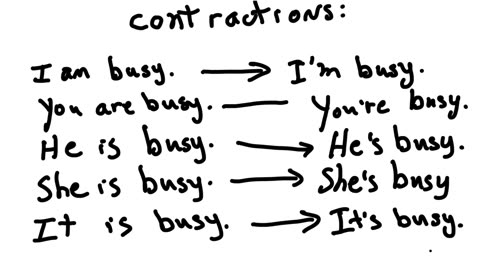 contractions:
I am busy. → I'm busy.
You are busy. — You're busy.
He is busy. → He's busy.
She is busy. → She's busy
It is busy. → It's busy.